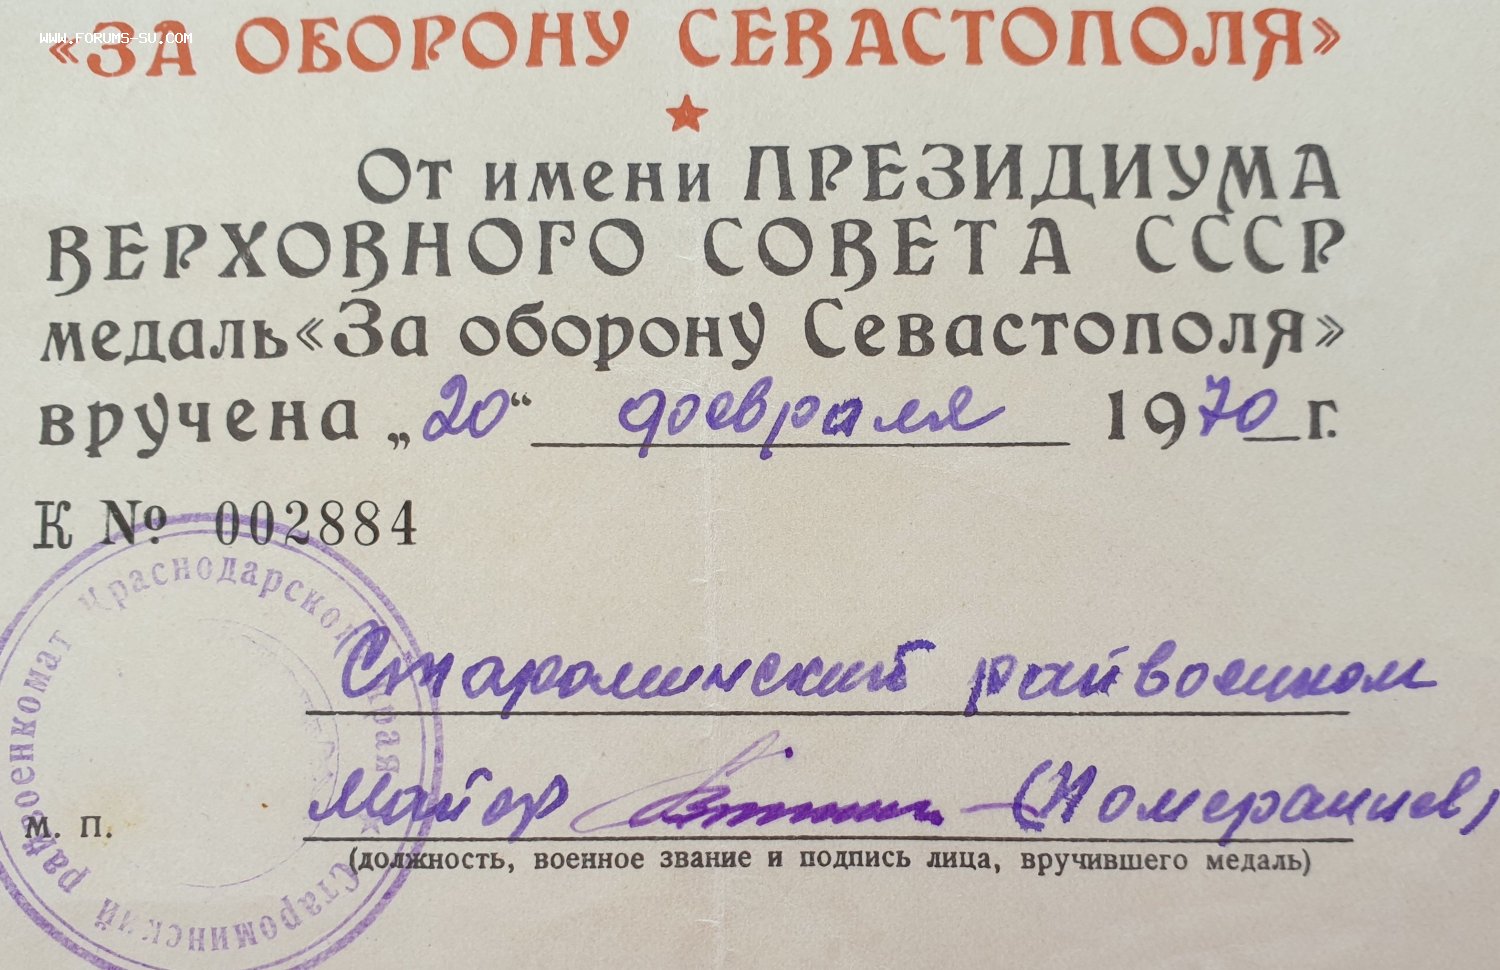 WWW.FORUMS-SU.COM
«ЗА ОБОРОНУ СЕВАСТОПОЛЯ»
От имени ПРЕЗИДИУМА
ВЕРХОВНОГО СОВЕТА СССР
медаль «За оборону Севастополя»
вручена „20“ февраля 1970 г.
К № 002884
Староминский райвоенком
Майор (Померанцев)
м. п.
(должность, военное звание и подпись лица, вручившего медаль)
Староминский райвоенкомат Краснодарского края